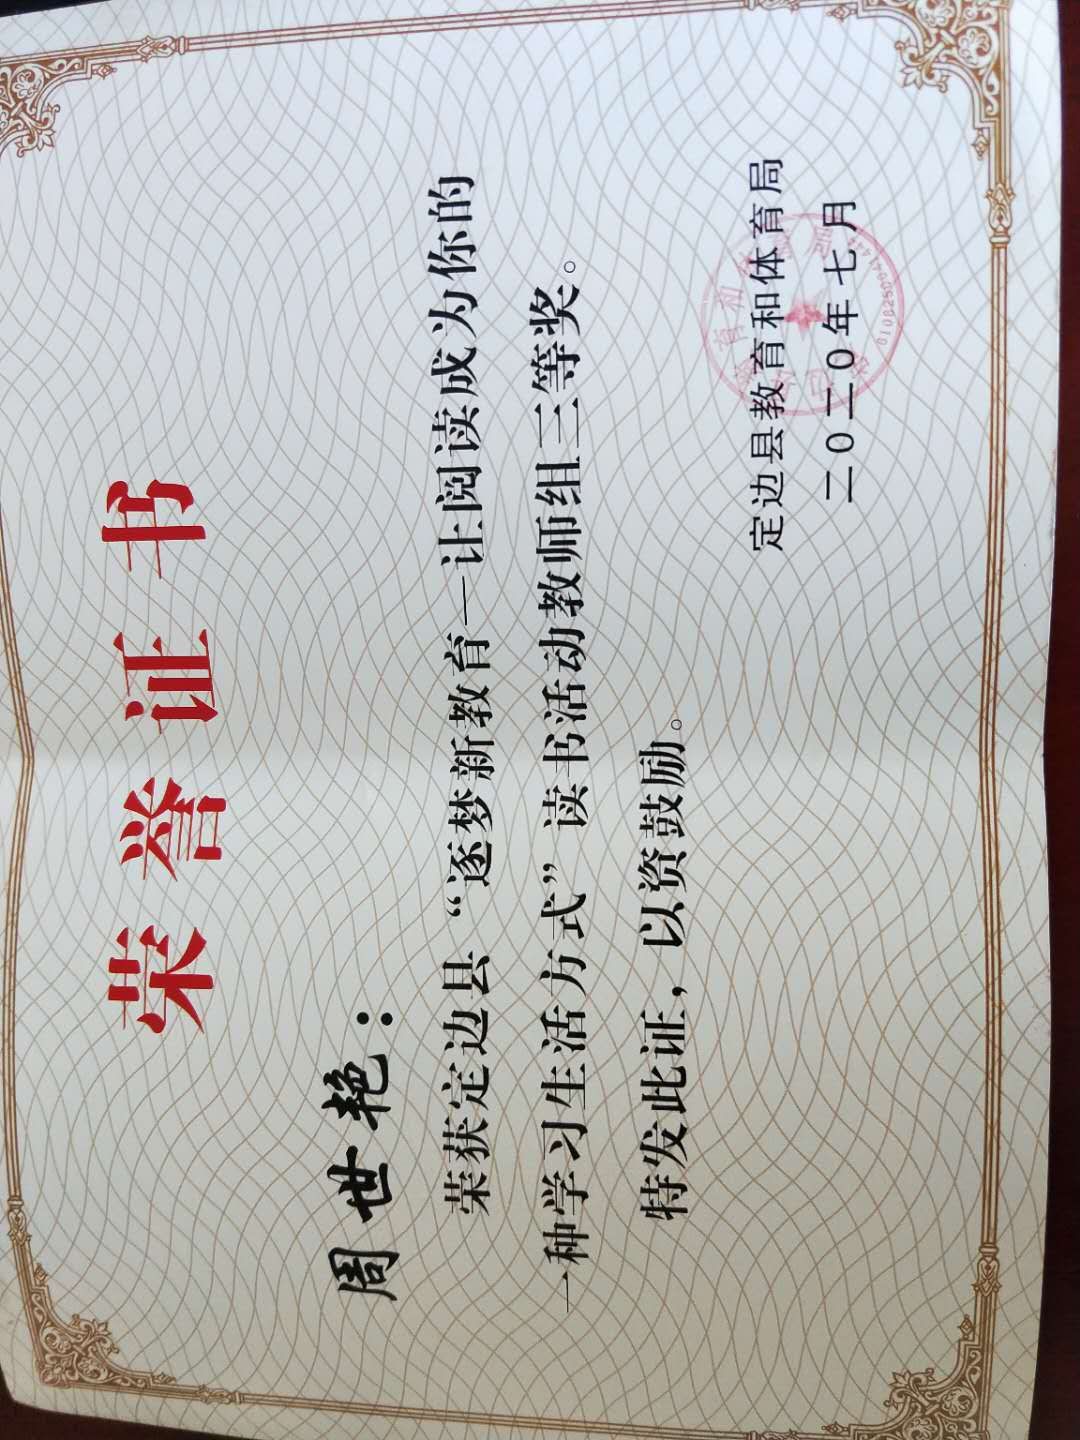 荣誉证书
周世艳：
荣获定边县“逐梦新教育—让阅读成为你的
一种学习生活方式”读书活动教师组三等奖。
特发此证，以资鼓励。
定边县教育和体育局
二〇二〇年七月